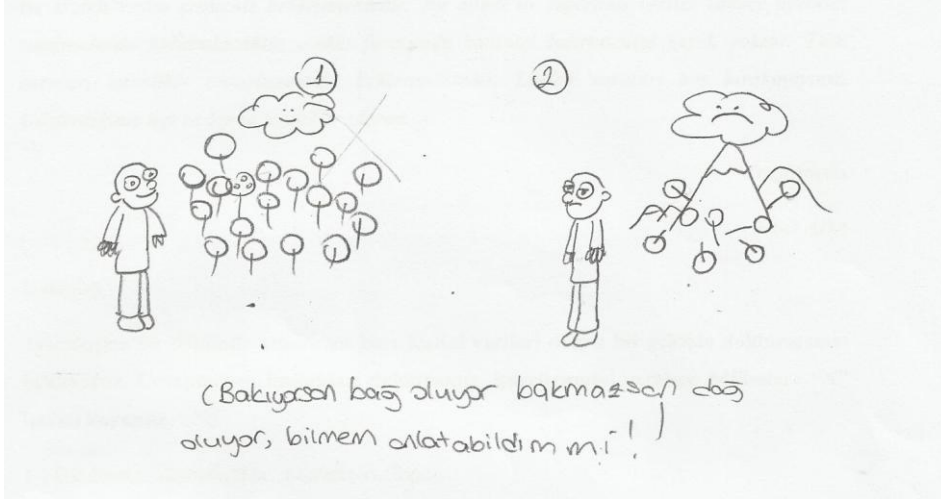 1
2
(Bakıyorsan bağ oluyor bakmazsan dağ
oluyor, bilmem anlatabildim mi!)